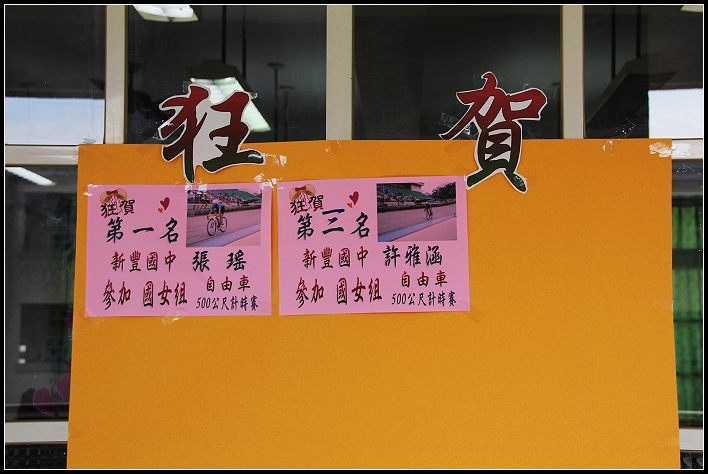 狂賀
狂賀
第一名
新豐國中 張瑤
參加 國女組 自由車
500公尺計時賽
狂賀
第三名
新豐國中 許雅涵
參加 國女組 自由車
500公尺計時賽